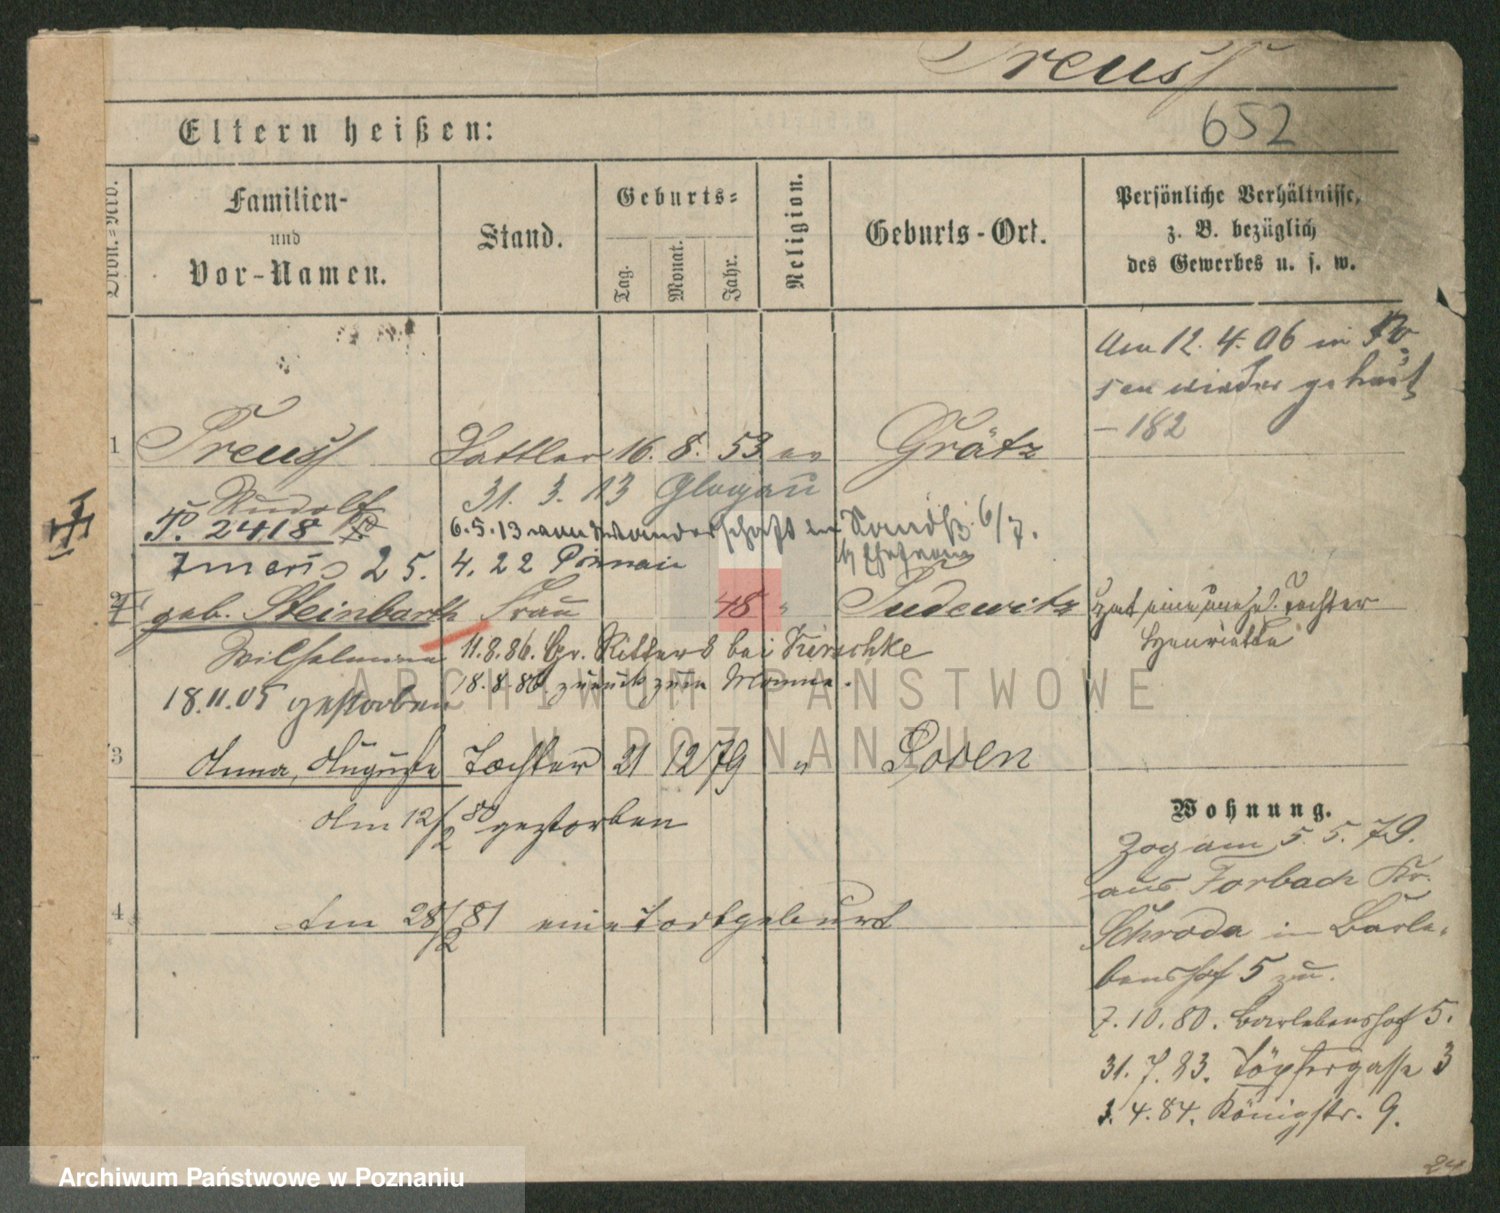 Preuss
652
Eltern heißen:
Ordn.=Nro.
Familien-
und
Vor-Namen.
Stand.
Geburts=
Tag.
Monat.
Jahr.
Religion.
Geburts-Ort.
Persönliche Verhältnisse,
z. B. bezüglich
des Gewerbes u. s. w.
Am 12. 4. 06 in Po
sen wieder geheirat
- 182
1 Preuss Sattler 16. 8. 53. ev Grätz
Rudolf 31. 3. 13 Glogau
P. 2418 6.5.13 von Wanderschaft 6/7.
25. 4. 22 Poznań
2 geb. Steinbarth Frau 48 " Pudewitz hat eine unehel. Tochter
Henriette
Wilhelmine 11.8.86. Gr. Ritterst bei Kirschke
18.8.86 zurück zum Manne.
18.11.05 gestorben
3 Anna, Auguste Tochter 21 12 79 " Posen
Am 12/2 80 gestorben
4 Am 28/2 81 eine Todtgeburt
Wohnung.
Zog am 5. 5. 79.
aus Forbach Kr.
Schroda in Barle-
benshof 5 zu.
7. 10. 80. Barlebenshof 5.
31. 7. 83. Töpfergasse 3
1. 4. 84. Königstr. 9.
24
ARCHIWUM PAŃSTWOWE
W POZNANIU
Archiwum Państwowe w Poznaniu